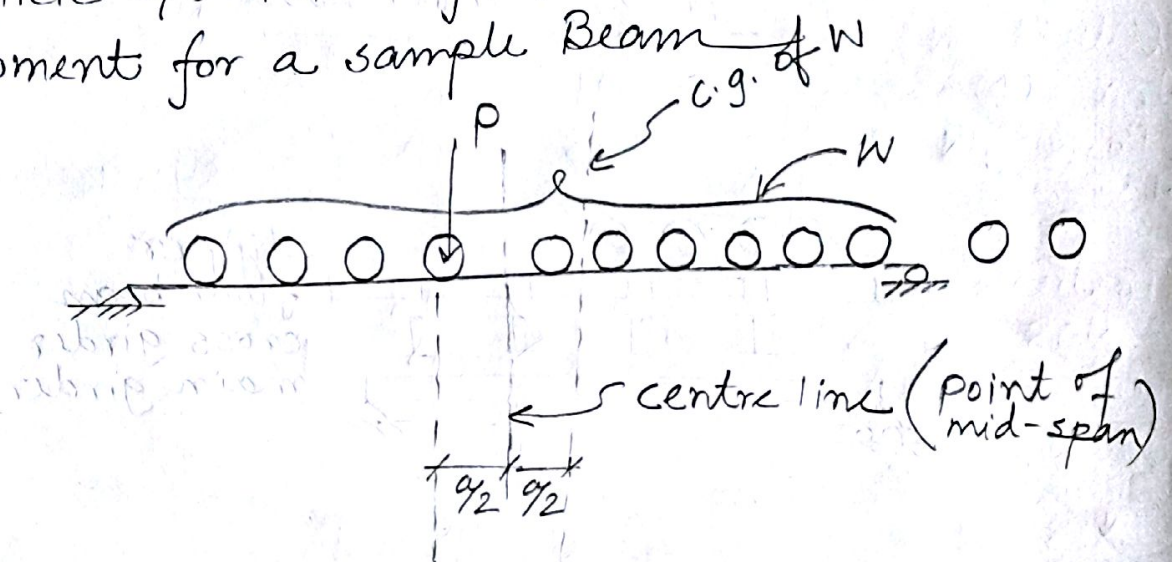 for a sample Beam
c.g. of W
P
W
centre line (point of mid-span)
a/2 a/2